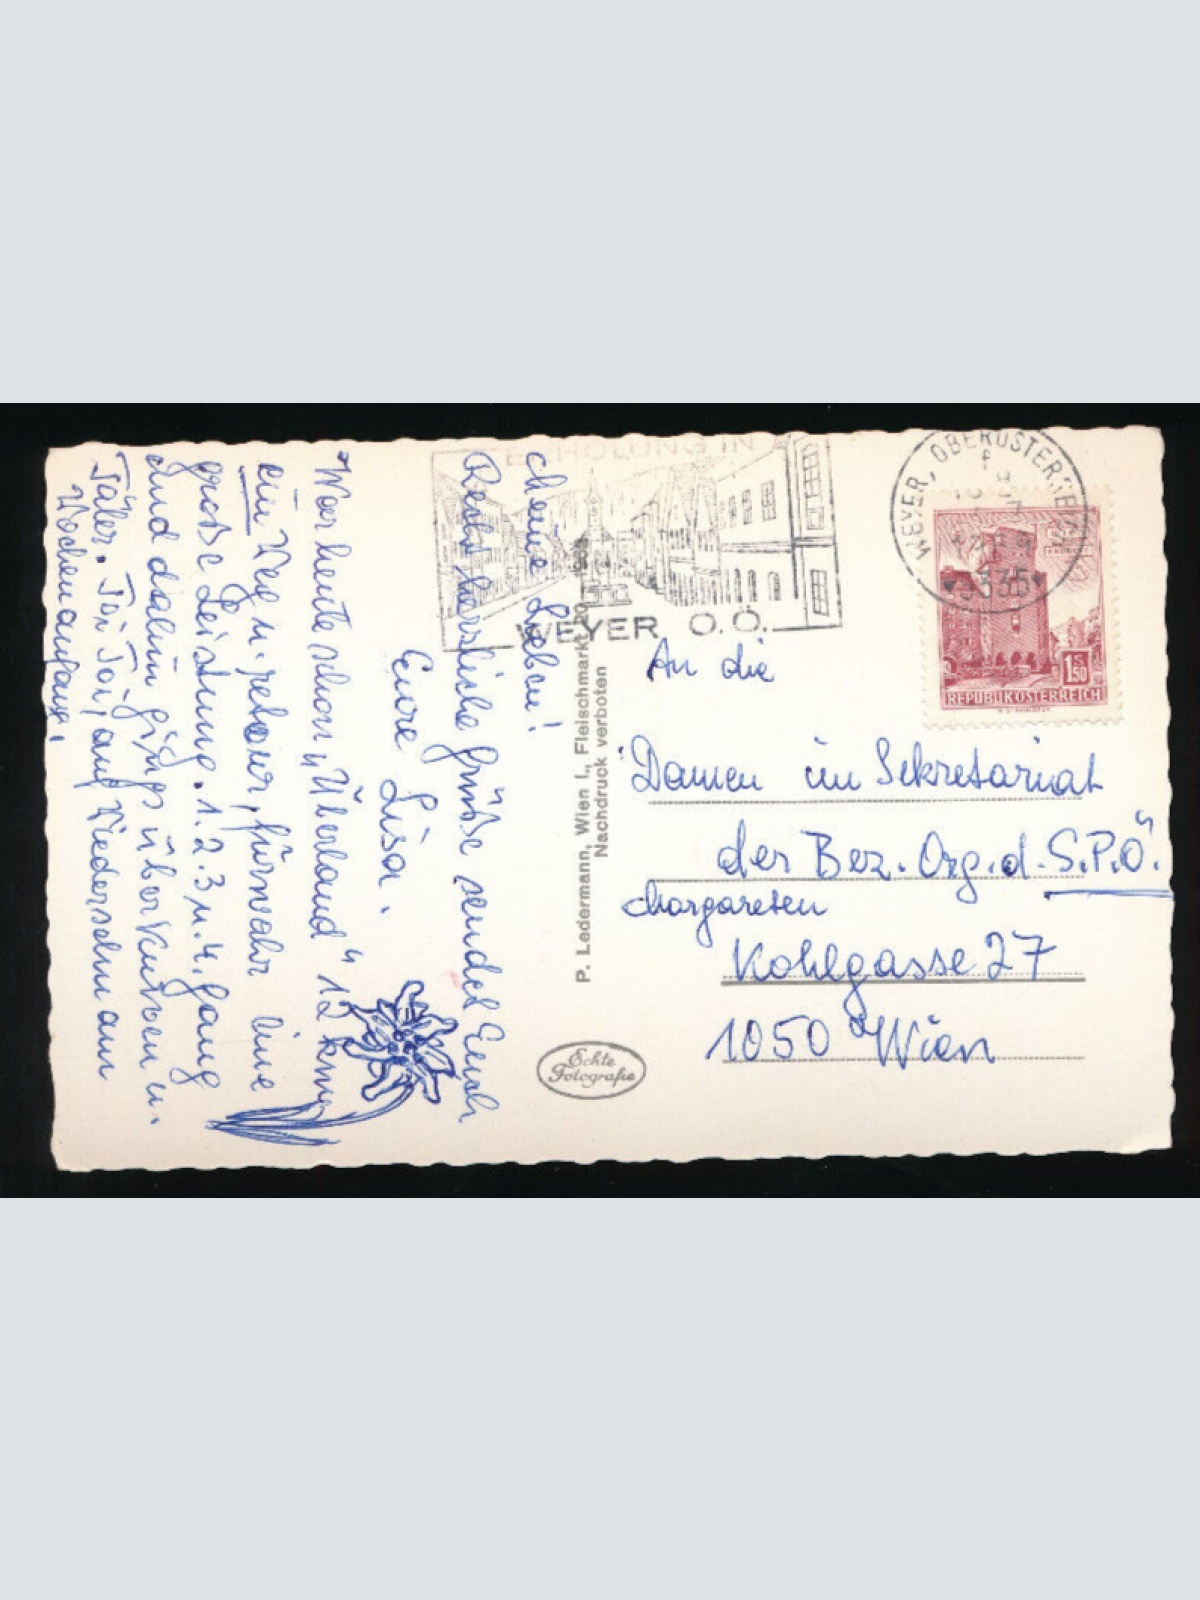 ERHOLUNG IN
WEYER O.Ö.
WEYER, OBERÖSTERREICH
3335
1.50
REPUBLIK ÖSTERREICH
Meine Lieben!
Recht herzliche Grüße sendet Euch
Eure Lisa.
War heute schon "Überland" 12 km
ein Weg u. retour, fürwahr eine
große Leistung. 1. 2. 3 u. 4. Gang
und dahin ging's über Kurven u.
Täler. Toi Toi, auf Wiedersehn am
Wochenanfang!
P. Ledermann, Wien I., Fleischmarkt 20
Nachdruck verboten
Echte
Fotografie
An die
Damen im Sekretariat
der Bez. Org. d. S.P.Ö.
Margareten
Kohlgasse 27
1050 Wien